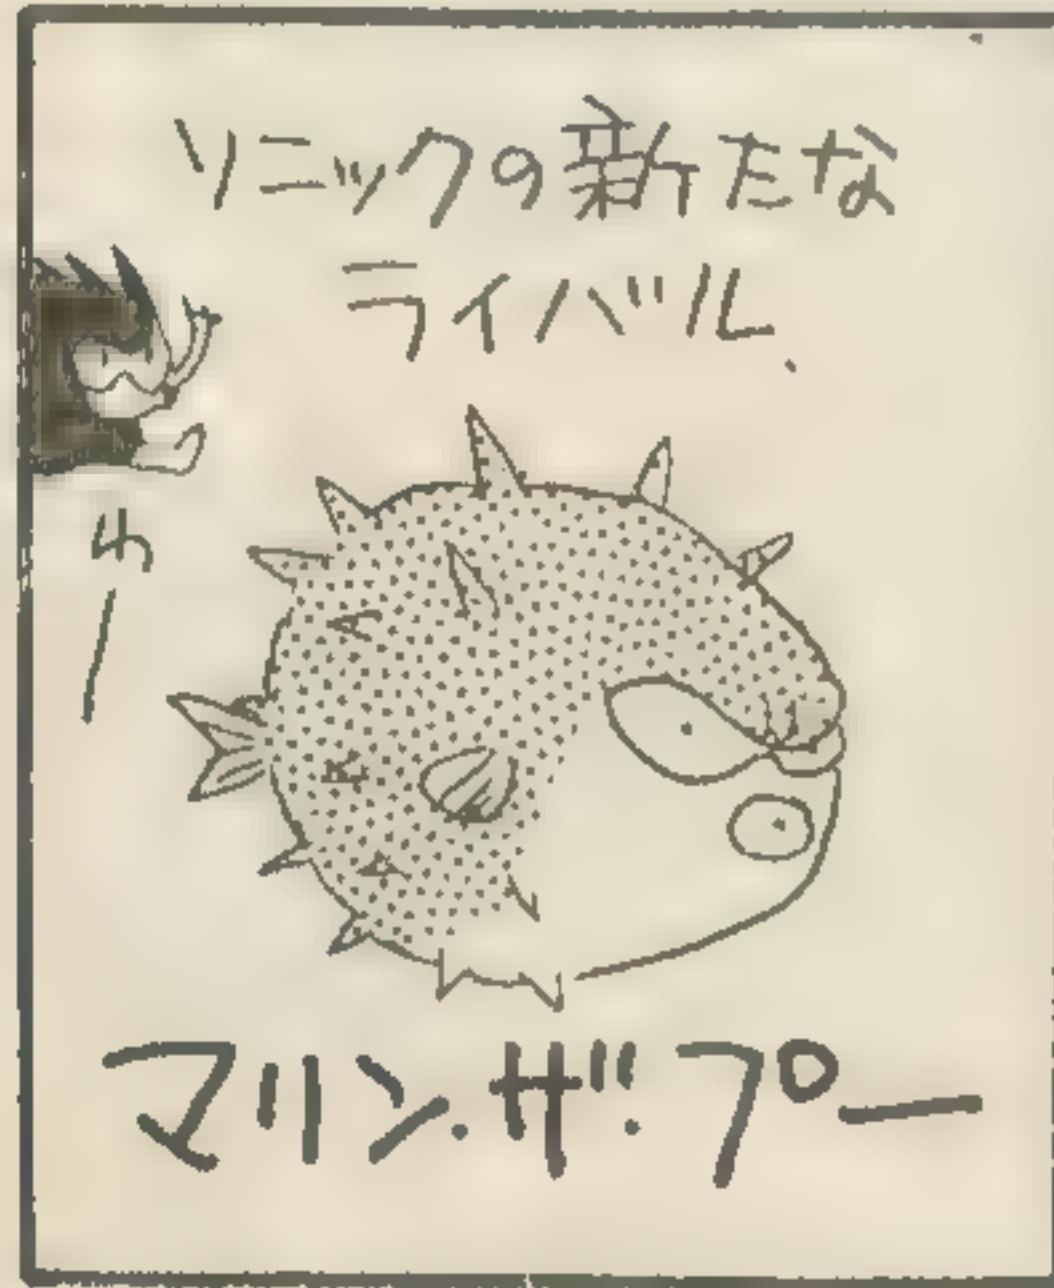 ソニックの新たな
ライバル、
わー
マリン・ザ・プー